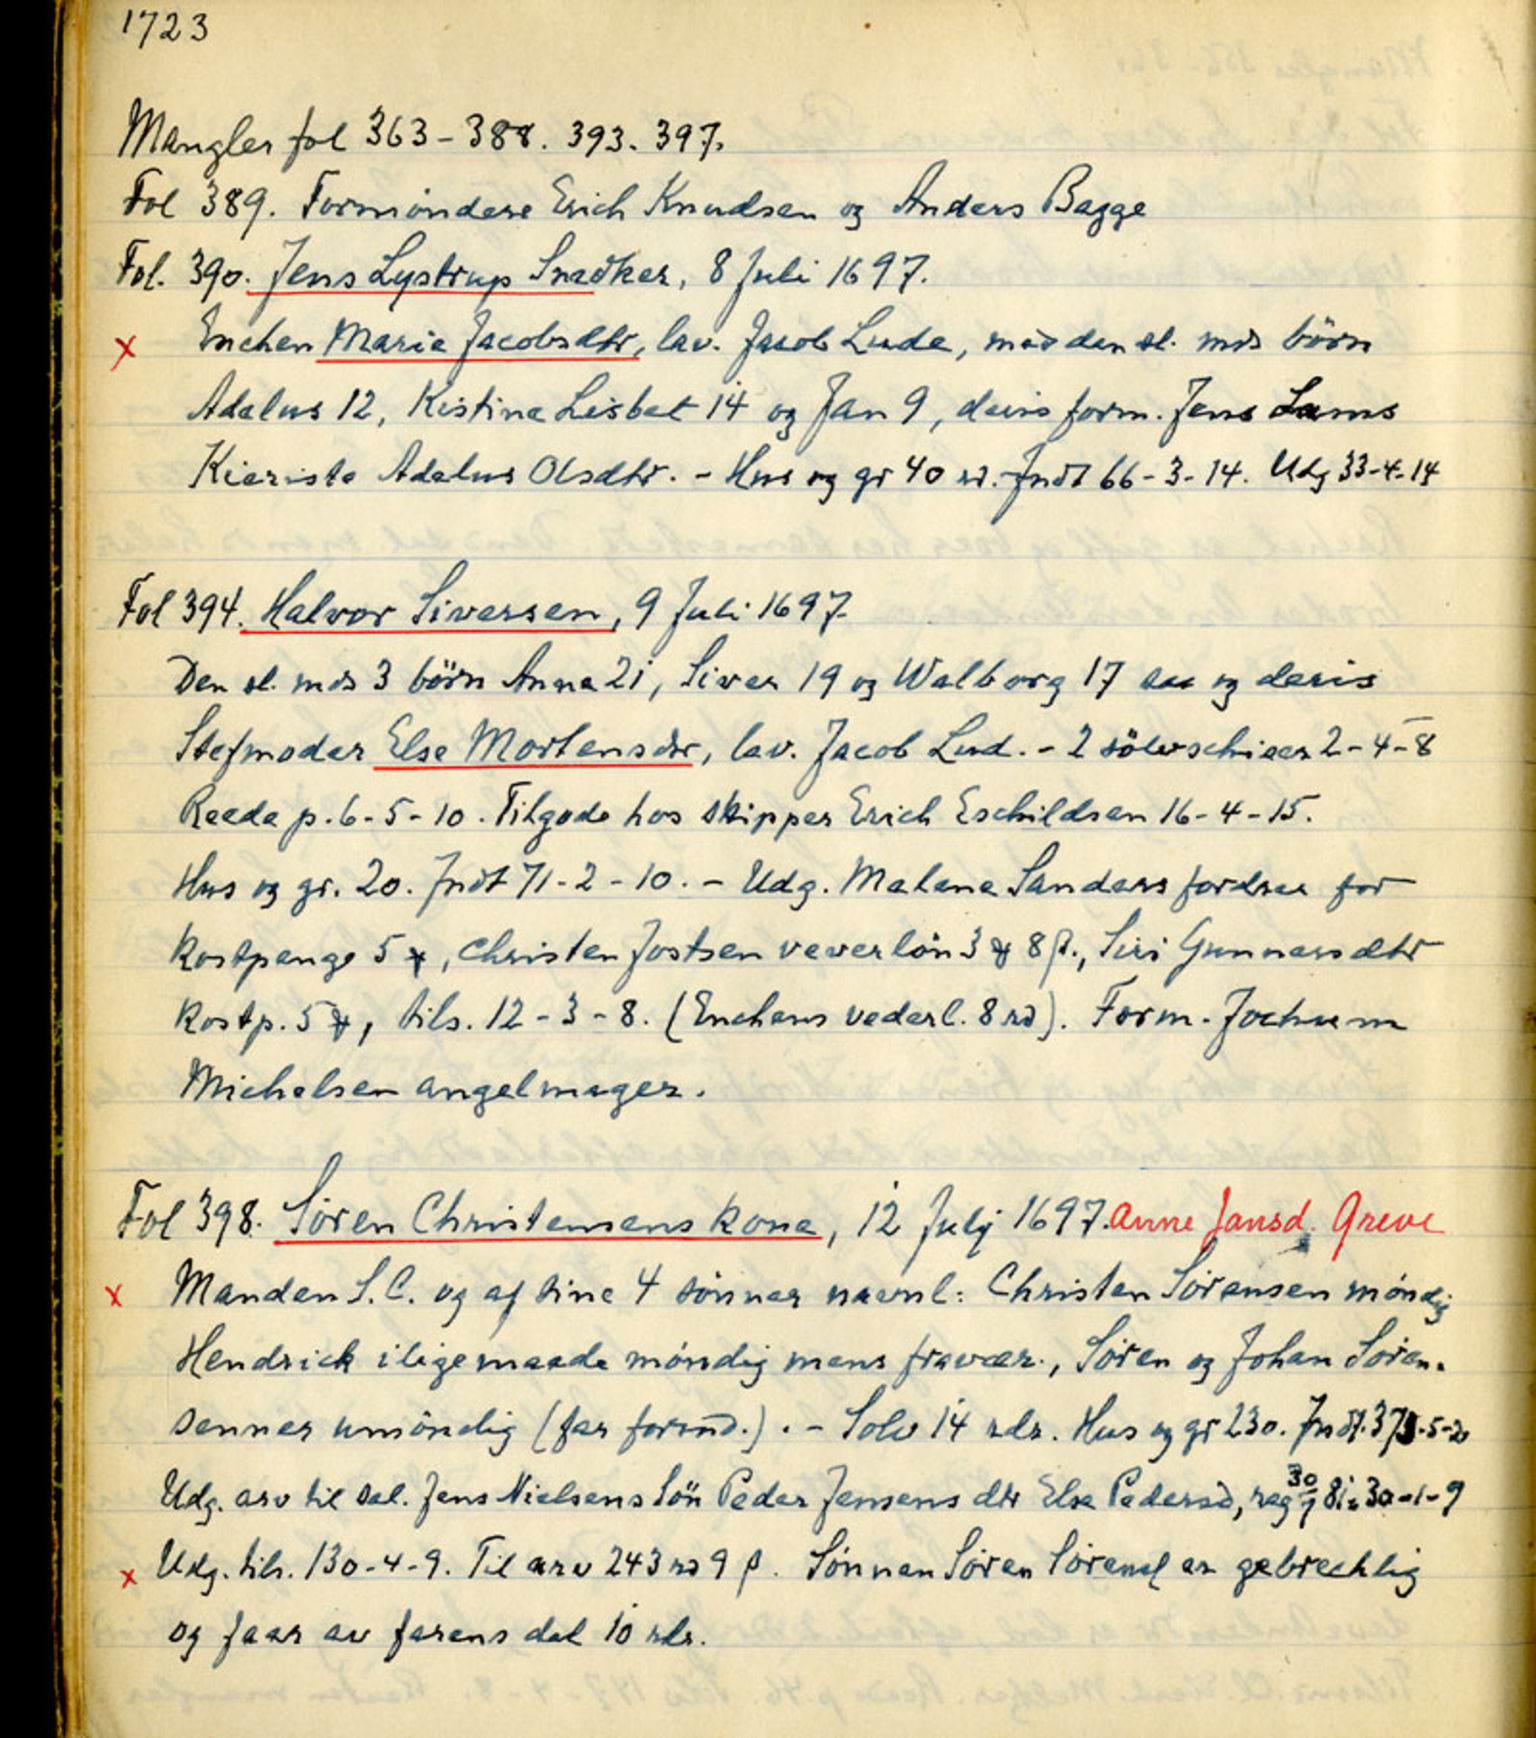 1723
Mangler fol 363-388. 393. 397.
Fol 389. Formöndere Erich Knudsen og Anders Bagge
Fol. 390. Jens Lystrup Snedker, 8 Juli 1697.
x Enchen Marie Jacobsdtr, lav. Jacob Lude, med den sl. mds börn
Adelus 12, Kistine Lisbet 14 og Jan 9, deris form. Jens Lams
Kieriste Adelus Olsdtr. - Hus og gr 40 rd. Indt 66-3-14. Udg 33-4-14
Fol 394. Halvor Siversen, 9 Juli 1697.
Den sl. mds 3 börn Anna 21, Siver 19 og Walborg 17 saa og deris
Stefmoder Else Mortensdtr, lav. Jacob Lud. - 2 sölvschieer 2-4-8
Reede p. 6-5-10. Tilgode hos skipper Erich Eschildsen 16-4-15.
Hus og gr. 20. Indt 71-2-10. - Udg. Malene Sanders fordrer for
kostpenge 5 , Christen Jostsen veverlön 3 8 β., Siri Gunnersdtr
kostp. 5 , tils. 12-3-8. (Enchens vederl. 8 rd). Form. Jochum
Michelsen angelmager.
Fol 398. Sören Christensens kone, 12 Julij 1697. Anne Jansd. Greve
x Manden S. C. og af sine 4 sönner navnl: Christen Sörensen möndig
Hendrick iligemaade möndig mens fravær., Sören og Johan Sören-
senner umöndig (far formd.). - Solv 14 rdr. Hus og gr 230. Indt.
Udg. arv til sal. Jens Nielsens Sön Peder Jensens dtr Else Pedersd, reg 30/7 81 = 30-1-9
x Udg. tils. 130-4-9. Til arv 243 rd 9 β. Sönnen Sören Sörens er gebrechlig
og faar av farens del 10 rdr.